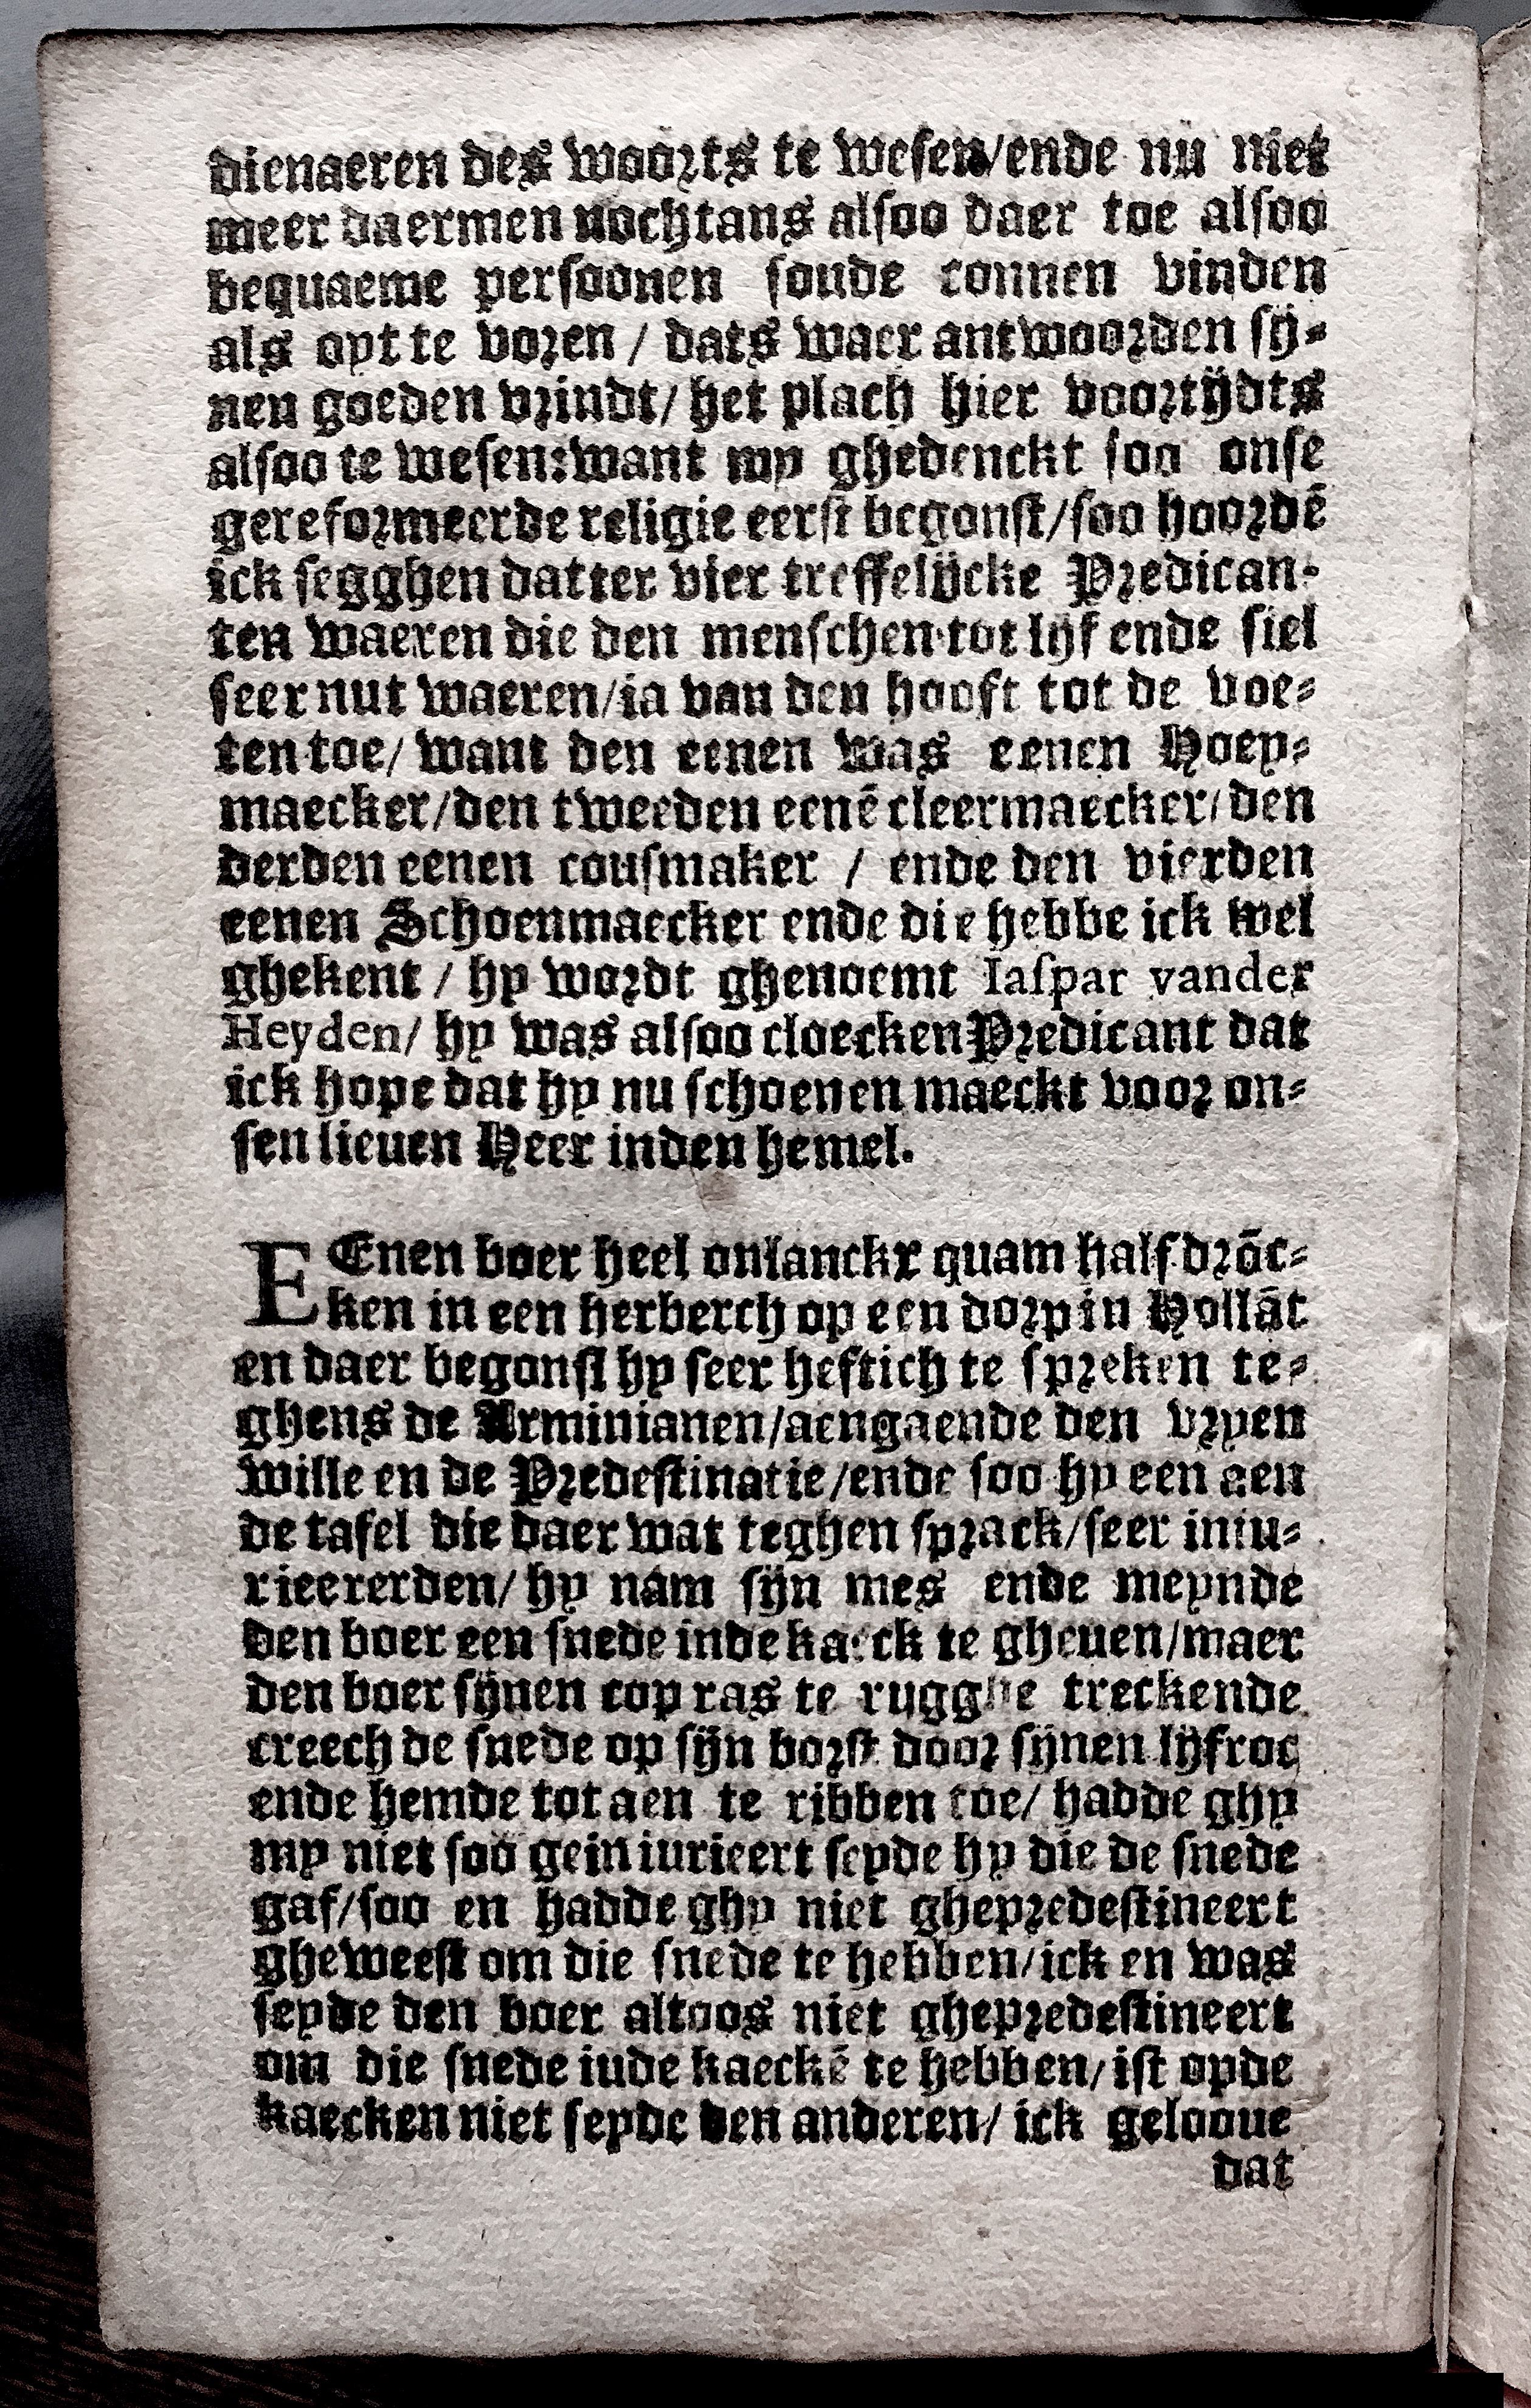 dienaeren des woorts te wesen/ende nu niet
meer daermen nochtans alsoo daer toe alsoo
bequaeme persoonen soude connen vinden
als oyt te voren / dats waer antwoorden sij-
nen goeden vrindt/ het plach hier voortijdts
alsoo te wesen:want my ghedenckt soo onse
gereformeerde religie eerst begonst/soo hoordē
ick segghen datter vier treffelijcke Predican-
ten waeren die den menschen tot lijf ende siel
seer nut waeren/ia van den hooft tot de voe-
ten toe/ want den eenen was eenen Hoey-
maecker/den tweeden eenē cleermaecker/den
derden eenen cousmaker / ende den vierden
eenen Schoenmaecker ende die hebbe ick wel
ghekent / hy wordt ghenoemt Iaspar vander
Heyden/ hy was alsoo cloecken Predicant dat
ick hope dat hy nu schoenen maeckt voor on-
sen lieuen Heer inden hemel.
EEnen boer heel onlanckx quam half drōc-
ken in een herberch op een dorp in Hollāt
en daer begonst hy seer heftich te spreken te-
ghens de Arminianen/aengaende den vryen
wille en de Predestinatie/ende soo hy een aen
de tafel die daer wat teghen sprack/seer iniu-
rieererden/ hy nam sijn mes ende meynde
den boer een snede inde kaeck te gheuen/maer
den boer sijnen cop ras te rugghe treckende
creech de snede op sijn borst door sijnen lijfroc
ende hemde tot aen te ribben toe/ hadde ghy
my niet soo geiniurieert seyde hy die de snede
gaf/soo en hadde ghy niet ghepredestineert
gheweest om die snede te hebben/ick en was
seyde den boer altoos niet ghepredestineert
om die snede iude kaeckē te hebben/ist opde
kaecken niet seyde den anderen/ ick gelooue
dat